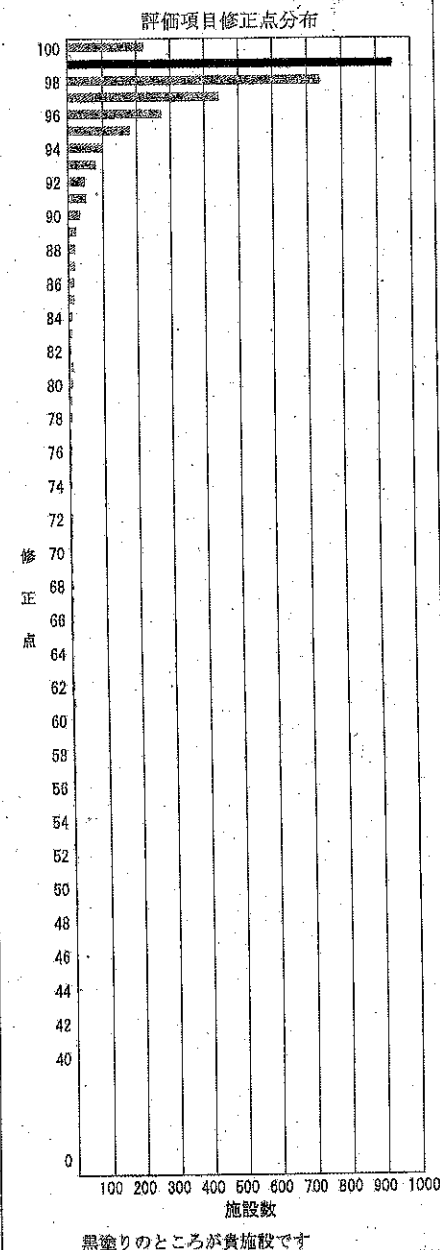 評価項目修正点分布
100
98
96
94
92
90
88
86
84
82
80
78
76
74
72
修 70
68
正
66
点
64
62
60
58
56
54
52
50
48
46
44
42
40
0
100 200 300 400 500 600 700 800 900 1000
施設数
黒塗りのところが貴施設です